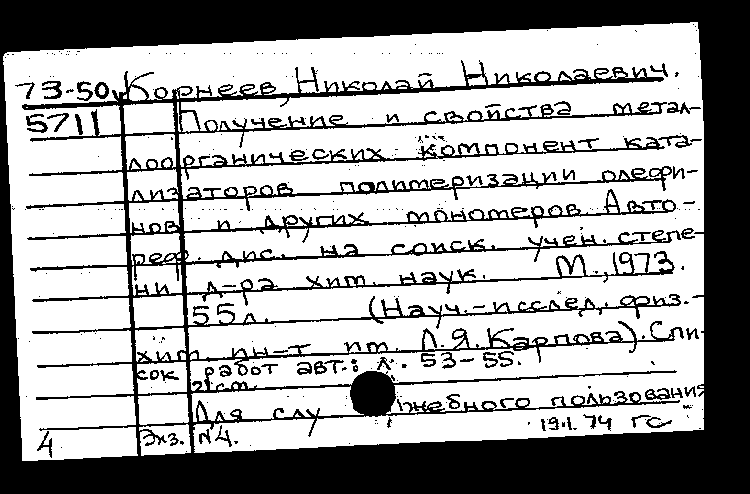 73-50 Корнеев, Николай Николаевич.
5711 Получение и свойства метал-
лоорганических компонент ката-
лизаторов полимеризации олефи-
нов и других мономеров Авто-
реф. дис. на соиск. учен. степе-
ни д-ра хим. наук. М., 1973.
55л. (Науч.-исслед. физ.-
хим. ин-т им. Л.Я. Карпова). Спи-
сок работ авт.: л. 53-55.
Для служебного пользования
4 Экз. №4. 19.1.74 ГС